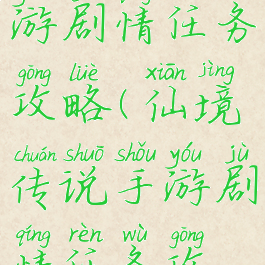 游剧情任务
gōng lüè xiān jìng
攻略(仙境
chuán shuō shǒu yóu jù
传说手游剧
qíng rèn wù gōng
情任务攻